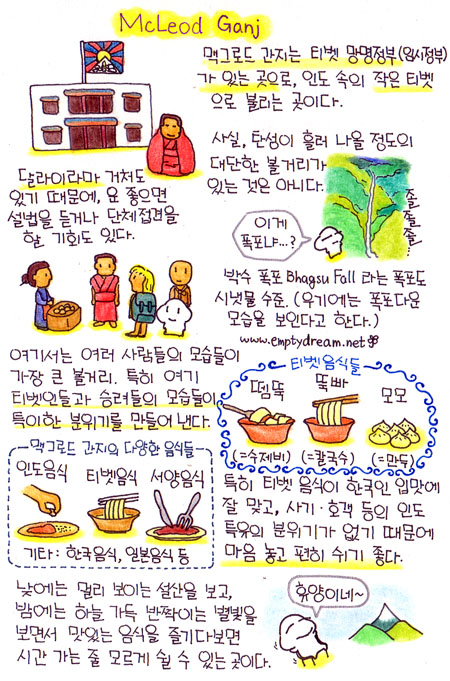 McLeod Ganj
맥그로드 간지는 티벳 망명정부(임시정부)
가 있는 곳으로, 인도 속의 작은 티벳
으로 불리는 곳이다.
사실, 탄성이 흘러 나올 정도의
대단한 볼거리가
있는 것은 아니다.
달라이라마 거처도
있기 때문에, 운 좋으면
설법을 듣거나 단체접견을
할 기회도 있다.
이게
폭포냐...?
졸
졸
졸...
박수 폭포 Bhagsu Fall 라는 폭포도
시냇물 수준. (우기에는 폭포다운
모습을 보인다고 한다.)
www.emptydream.net
여기서는 여러 사람들의 모습들이
가장 큰 볼거리. 특히 여기
티벳인들과 승려들의 모습들이
특이한 분위기를 만들어 낸다.
티벳음식들
뗌뚝 뚝빠 모모
(=수제비) (=칼국수) (=만두)
맥그로드 간지의 다양한 음식들
인도음식 티벳음식 서양음식
기타 : 한국음식, 일본음식 등
특히 티벳 음식이 한국인 입맛에
잘 맞고, 사기·호객 등의 인도
특유의 분위기가 없기 때문에
마음 놓고 편히 쉬기 좋다.
낮에는 멀리 보이는 설산을 보고,
밤에는 하늘 가득 반짝이는 별빛을
보면서 맛있는 음식을 즐기다보면
시간 가는 줄 모르게 쉴 수 있는 곳이다.
휴양이네~